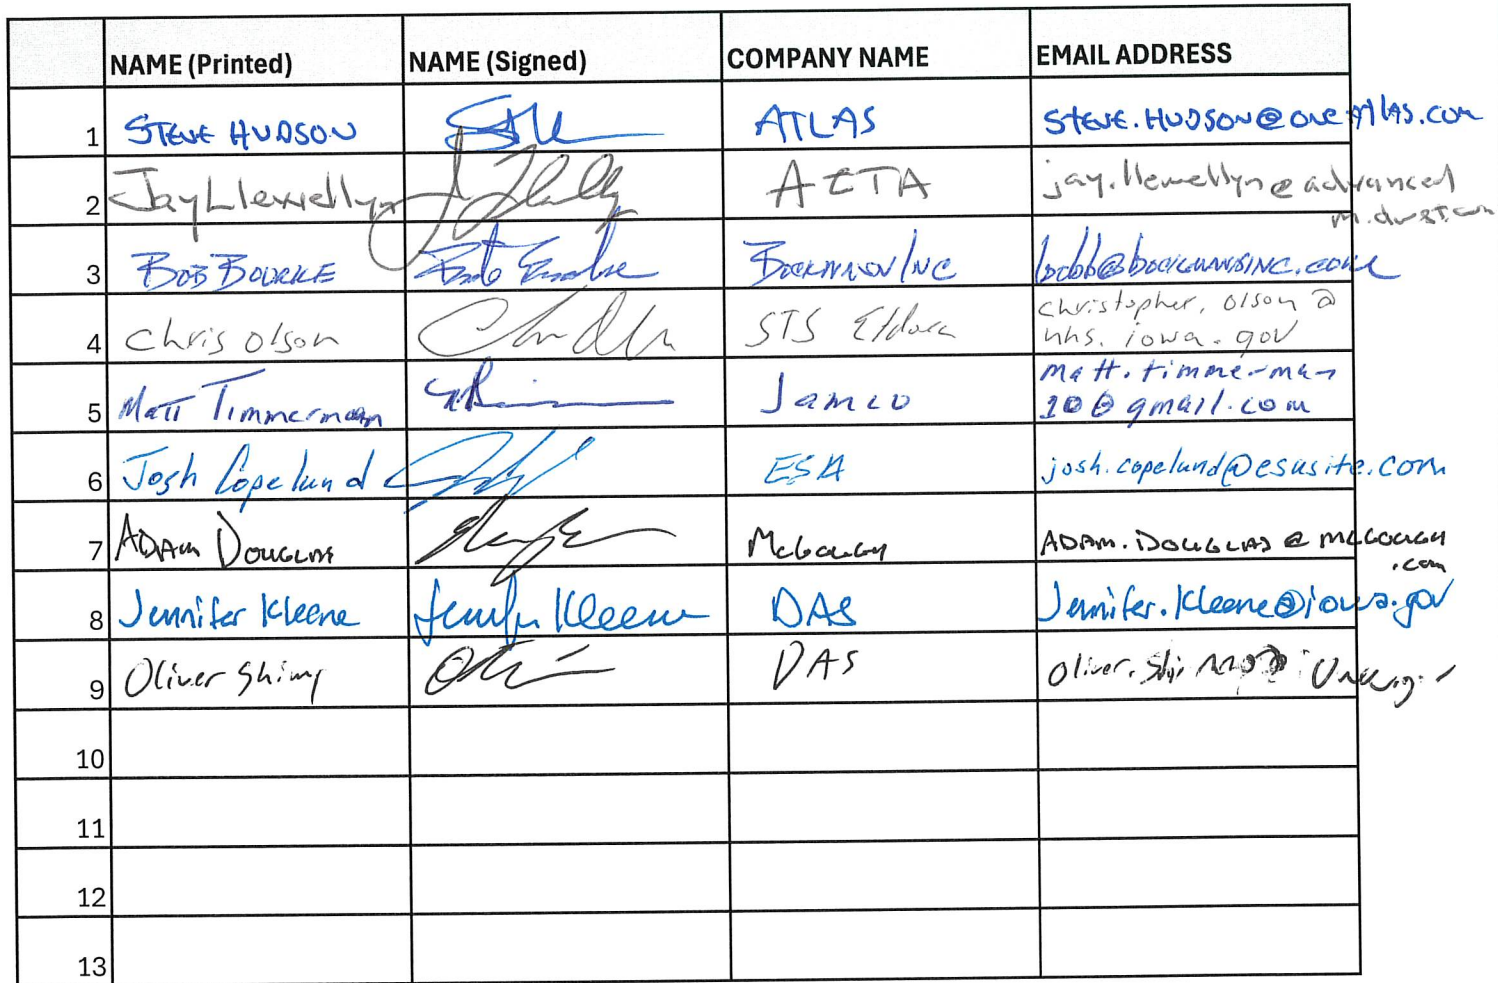 NAME (Printed) NAME (Signed) COMPANY NAME EMAIL ADDRESS
1 STEVE HUDSON ATLAS STEVE.HUDSON@oneAtlas.com
2 Jay Llewellyn AETA jay.llewellyn@advanced
3 BOB BOURKE INC
4 Chris Olson STS Eldora christopher.olson@
hhs.iowa.gov
5 Matt Timmerman Jamco matt.timmerman
10@gmail.com
6 Josh Copelund ESA josh.copelund@esasite.com
7 ADAM DOUGLAS McGough ADAM.DOUGLAS@MCGOUGH
.com
8 Jennifer Kleene Jennifer Kleene DAS Jennifer.Kleene@iowa.gov
9 Oliver DAS Oliver.
10
11
12
13